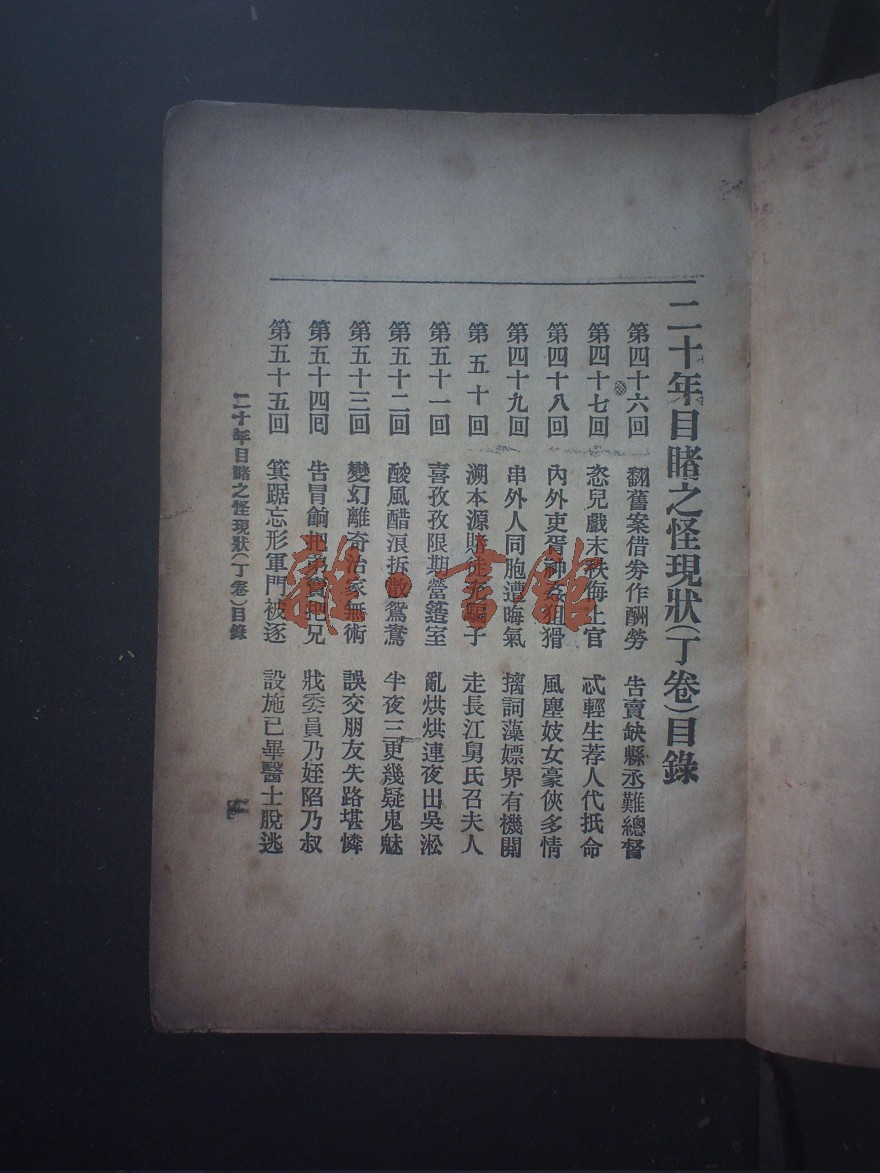 二十年目睹之怪現狀(丁卷)目錄
第四十六回 翻舊案借券作酬勞 告賣缺縣丞難總督
第四十七回 恣兒戲末秩侮上官 忒輕生荐人代抵命
第四十八回 內外吏胥神姦狙猾 風塵妓女豪俠多情
第四十九回 串外人同胞遭晦氣 摛詞藻嫖界有機關
第五十回 溯本源賭徒充騙子 走長江舅氏召夫人
第五十一回 喜孜孜限期營簉室 亂烘烘連夜出吳淞
第五十二回 酸風醋浪拆散鴛鴦 半夜三更幾疑鬼魅
第五十三回 變幻離奇治家無術 誤交朋友失路堪憐
第五十四回 告冒餉把弟賣把兄 戕委員乃姪陷乃叔
第五十五回 箕踞忘形軍門被逐 設施已畢醫士脫逃
二十年目睹之怪現狀(丁卷)目錄
雜·書館